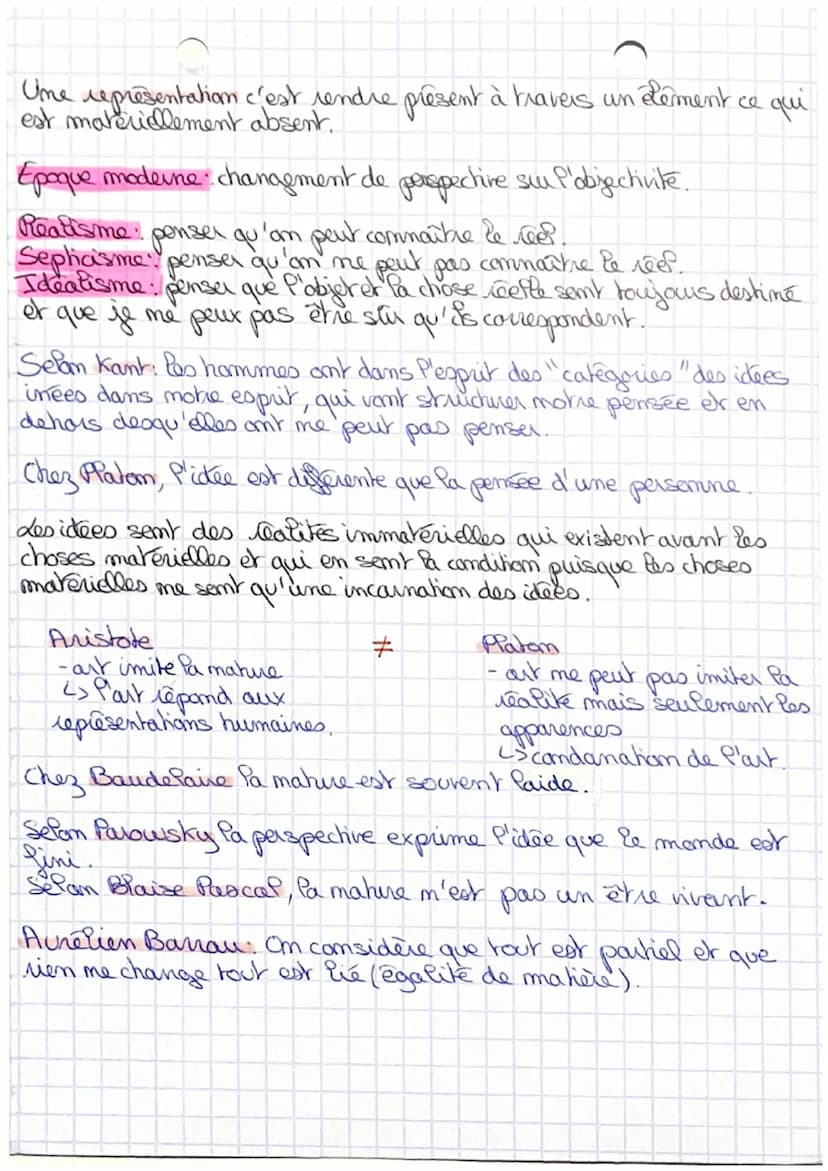 Une représentation c'est rendre présent à travers un élément ce qui
est matériellement absent.
Époque moderne: changement de perspective sur l'objectivité.
Réalisme: penser qu'on peut connaître le réel.
Septicisme: penser qu'on ne peut pas connaître le réel.
Idéalisme: penser que l'objet et la chose réelle sont toujours destiné
et que je ne peux pas être sûr qu'ils correspondent.
Selon Kant: les hommes ont dans l'esprit des "catégories" des idées
innées dans notre esprit, qui vont structurer notre pensée et en
dehors desqu'elles ont ne peut pas penser.
Chez Platon, l'idée est différente que la pensée d'une personne.
Les idées sont des réalités immatérielles qui existent avant les
choses matérielles et qui en sont la condition puisque les choses
matérielles ne sont qu'une incarnation des idées.
Aristote ≠ Platon
- art imite la nature - art ne peut pas imiter la
↳ l'art répond aux réalité mais seulement les
représentations humaines. apparences
↳ condanation de l'art.
Chez Baudelaire la nature est souvent laide.
Selon Parowsky la perspective exprime l'idée que le monde est
fini.
Selon Blaise Pascal, la nature n'est pas un être vivant.
Aurélien Barrau: On considère que tout est partiel et que
rien ne change tout est lié (égalité de matière).